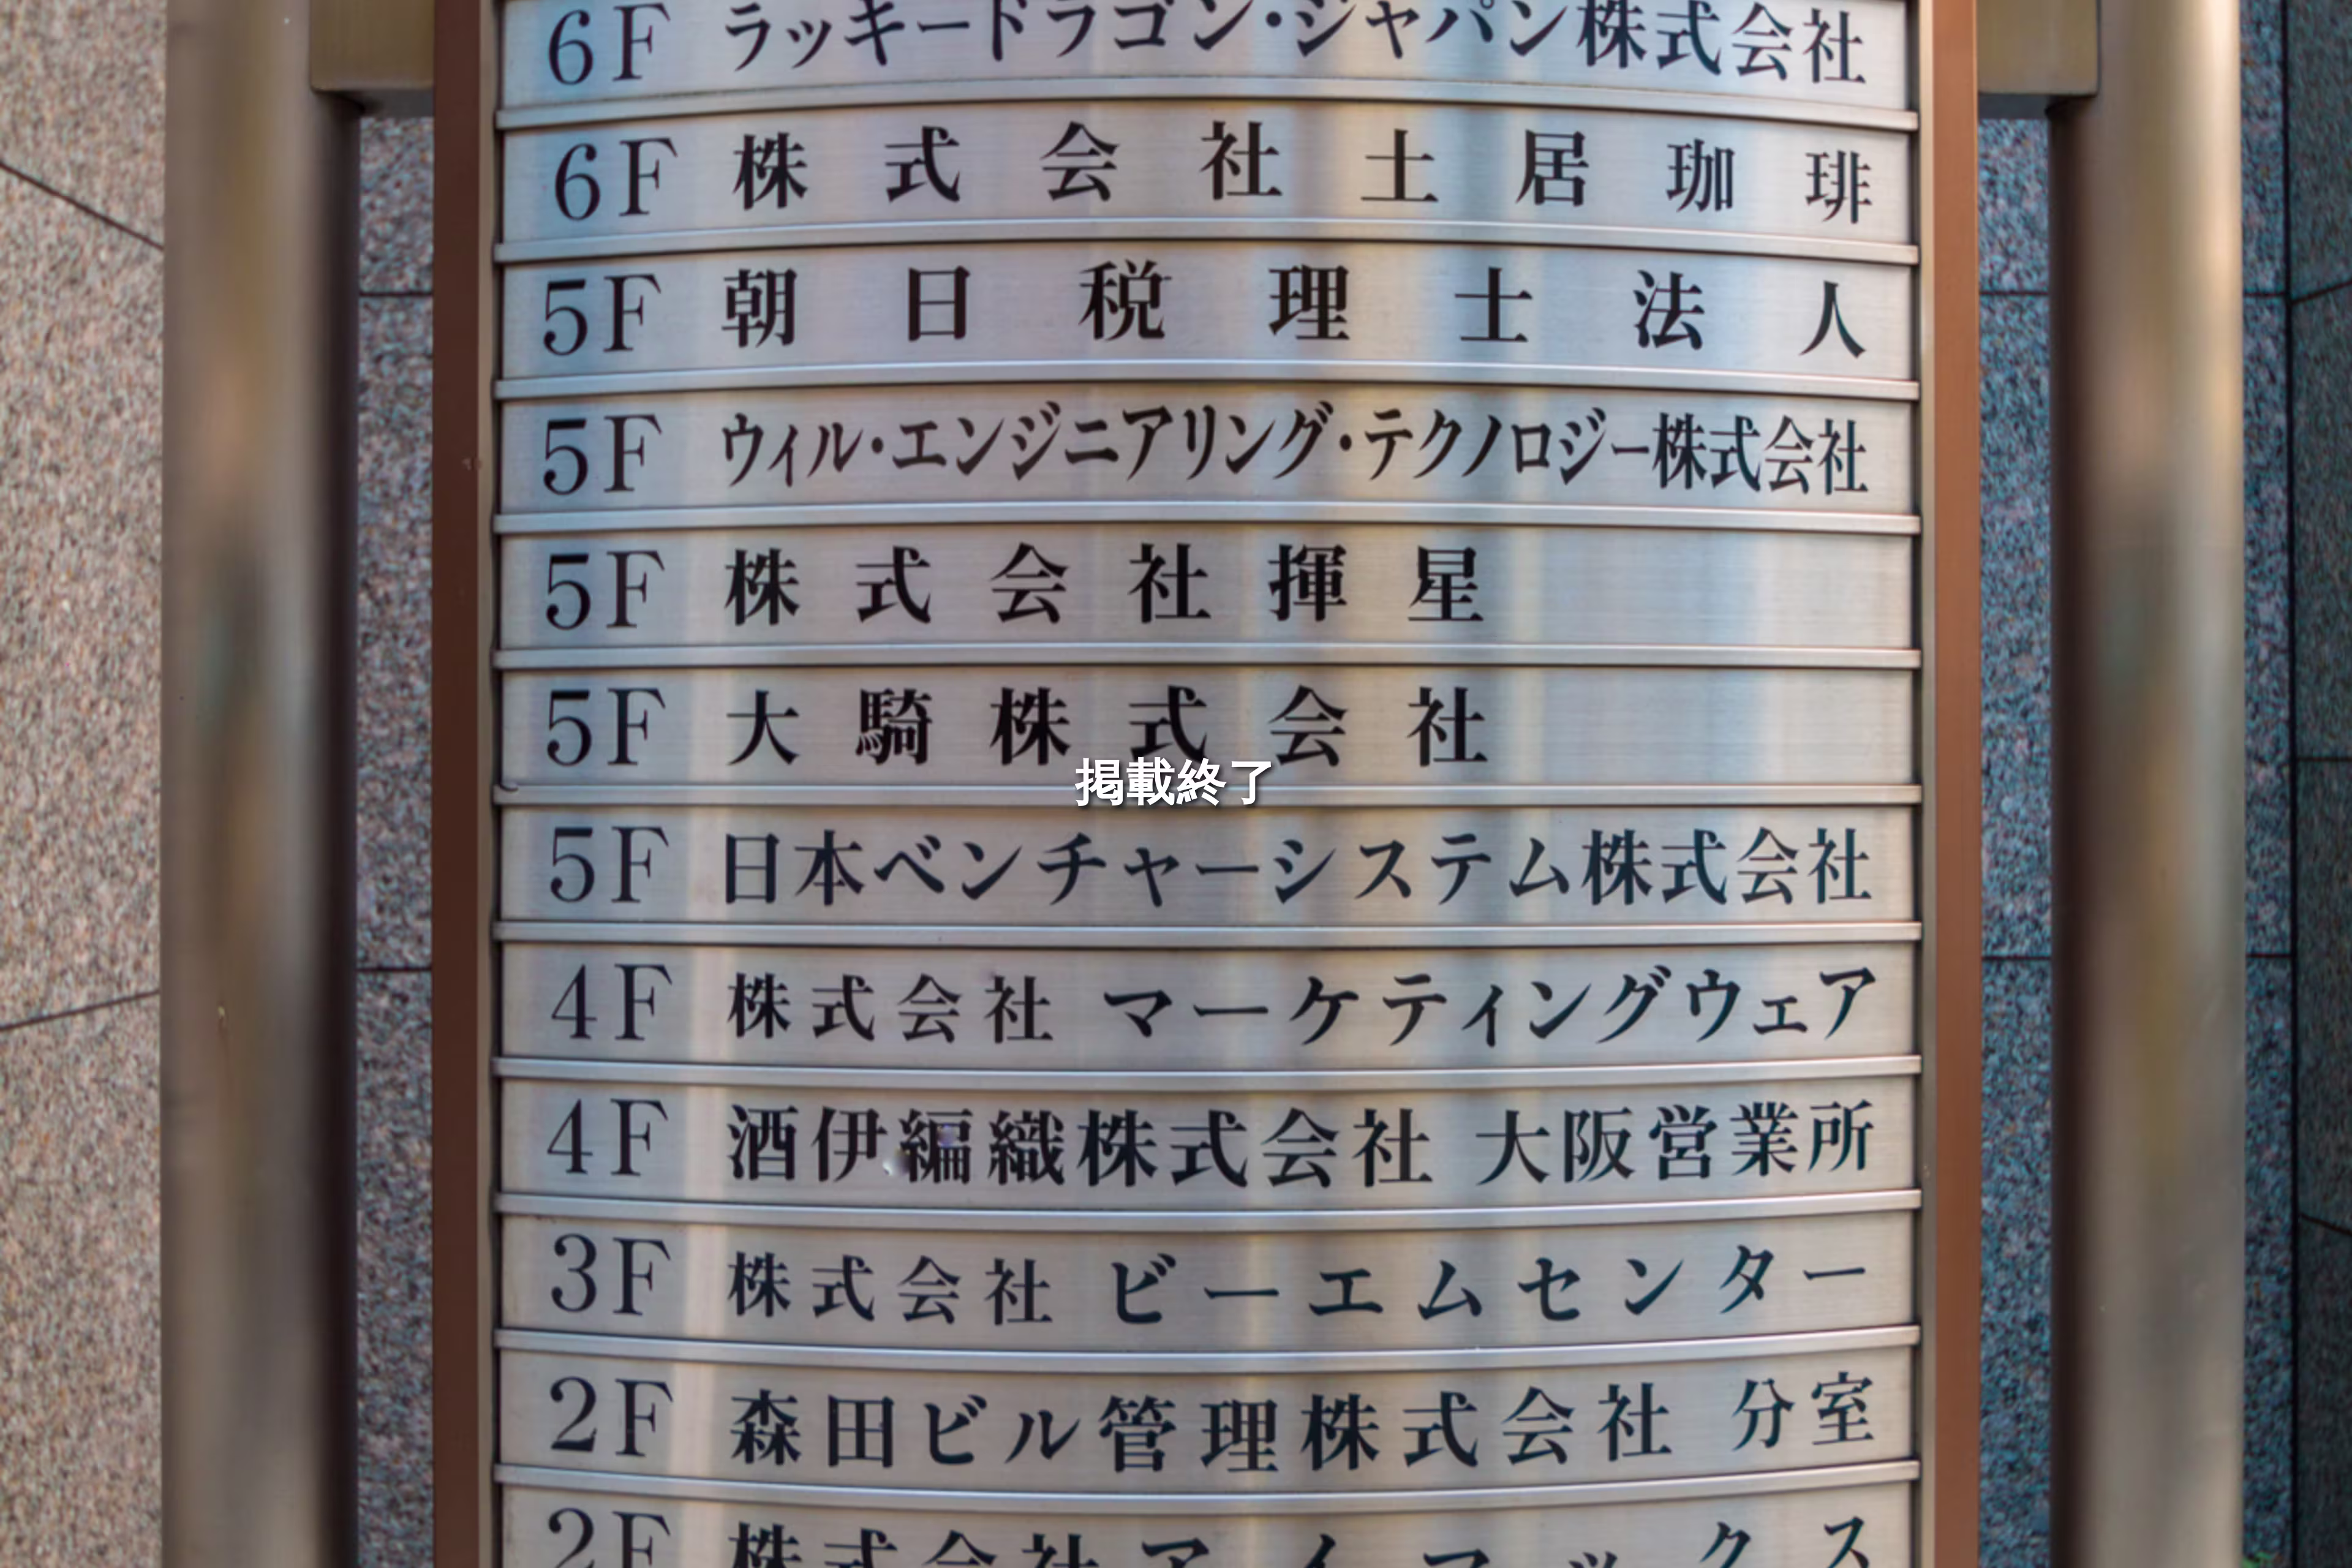 6F ラッキードラゴン・ジャパン株式会社
6F 株式会社土居珈琲
5F 朝日税理士法人
5F ウィル・エンジニアリング・テクノロジー株式会社
5F 株式会社揮星
5F 大騎株式会社
掲載終了
5F 日本ベンチャーシステム株式会社
4F 株式会社 マーケティングウェア
4F 酒伊編織株式会社 大阪営業所
3F 株式会社 ビーエムセンター
2F 森田ビル管理株式会社 分室
2F 株式会社